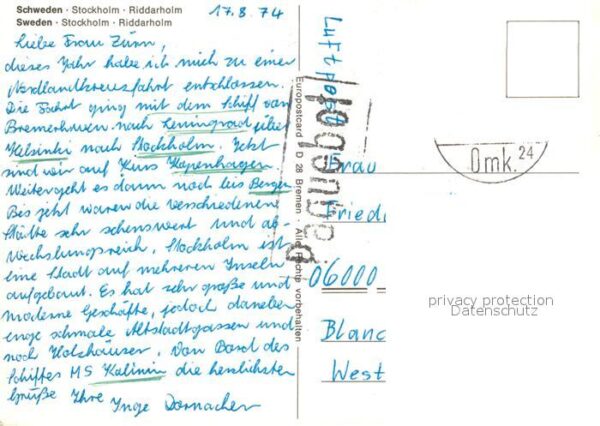 Schweden · Stockholm · Riddarholm
Sweden · Stockholm · Riddarholm
17.8.74
Liebe Frau Zürn,
dieses Jahr habe ich mich zu einer
Nordlandkreuzfahrt entschlossen.
Die Fahrt ging mit dem Schiff von
Bremerhaven nach Leningrad über
Helsinki nach Stockholm. Jetzt
sind wir auf Kurs Kopenhagen.
Weitergeht es dann noch bis Bergen
Bis jetzt waren die verschiedenen
Städte sehr sehenswert und ab-
wechslungsreich. Stockholm ist
eine Stadt auf mehreren Inseln
aufgebaut. Es hat sehr große und
moderne Geschäfte, jedoch daneben
enge schmale Altstadtgassen und
noch Holzhäuser. Von Bord des
Schiffes MS Kalinin die herzlichsten
Grüße Ihre Inge Dornacher
Europostcard D 28 Bremen · Alle Rechte vorbehalten
Luftpost
Paquebot
Omk. 24
Frau
Fried
06000
Blanc
West
privacy protection
Datenschutz